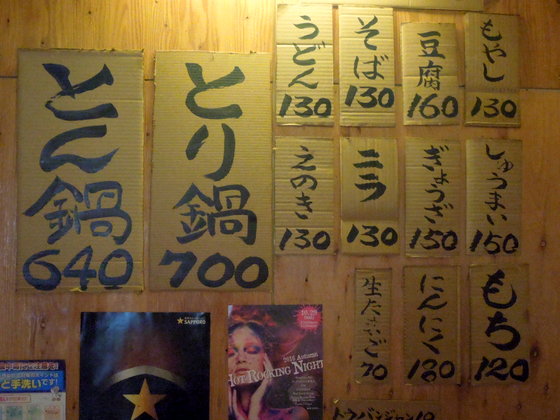 とん鍋
640
とり鍋
700
うどん
130
そば
130
豆腐
160
もやし
130
えのき
130
ニラ
130
ぎょうざ
150
しゅうまい
150
生たまご
70
にんにく
130
もち
120
トウバンジャン
SAPPORO
10.29
2016 Autumn
HOT ROCKING NIGHT
と手洗いです!